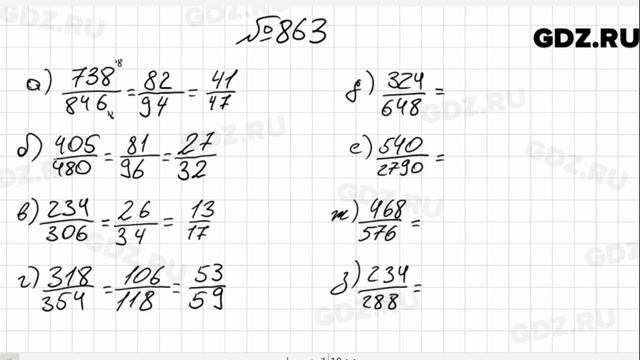 №863
GDZ.RU
а) 738/846 = 82/94 = 41/47
б) 405/480 = 81/96 = 27/32
в) 234/306 = 26/34 = 13/17
г) 318/354 = 106/118 = 53/59
д) 324/648 =
е) 540/2790 =
ж) 468/576 =
з) 234/288 =